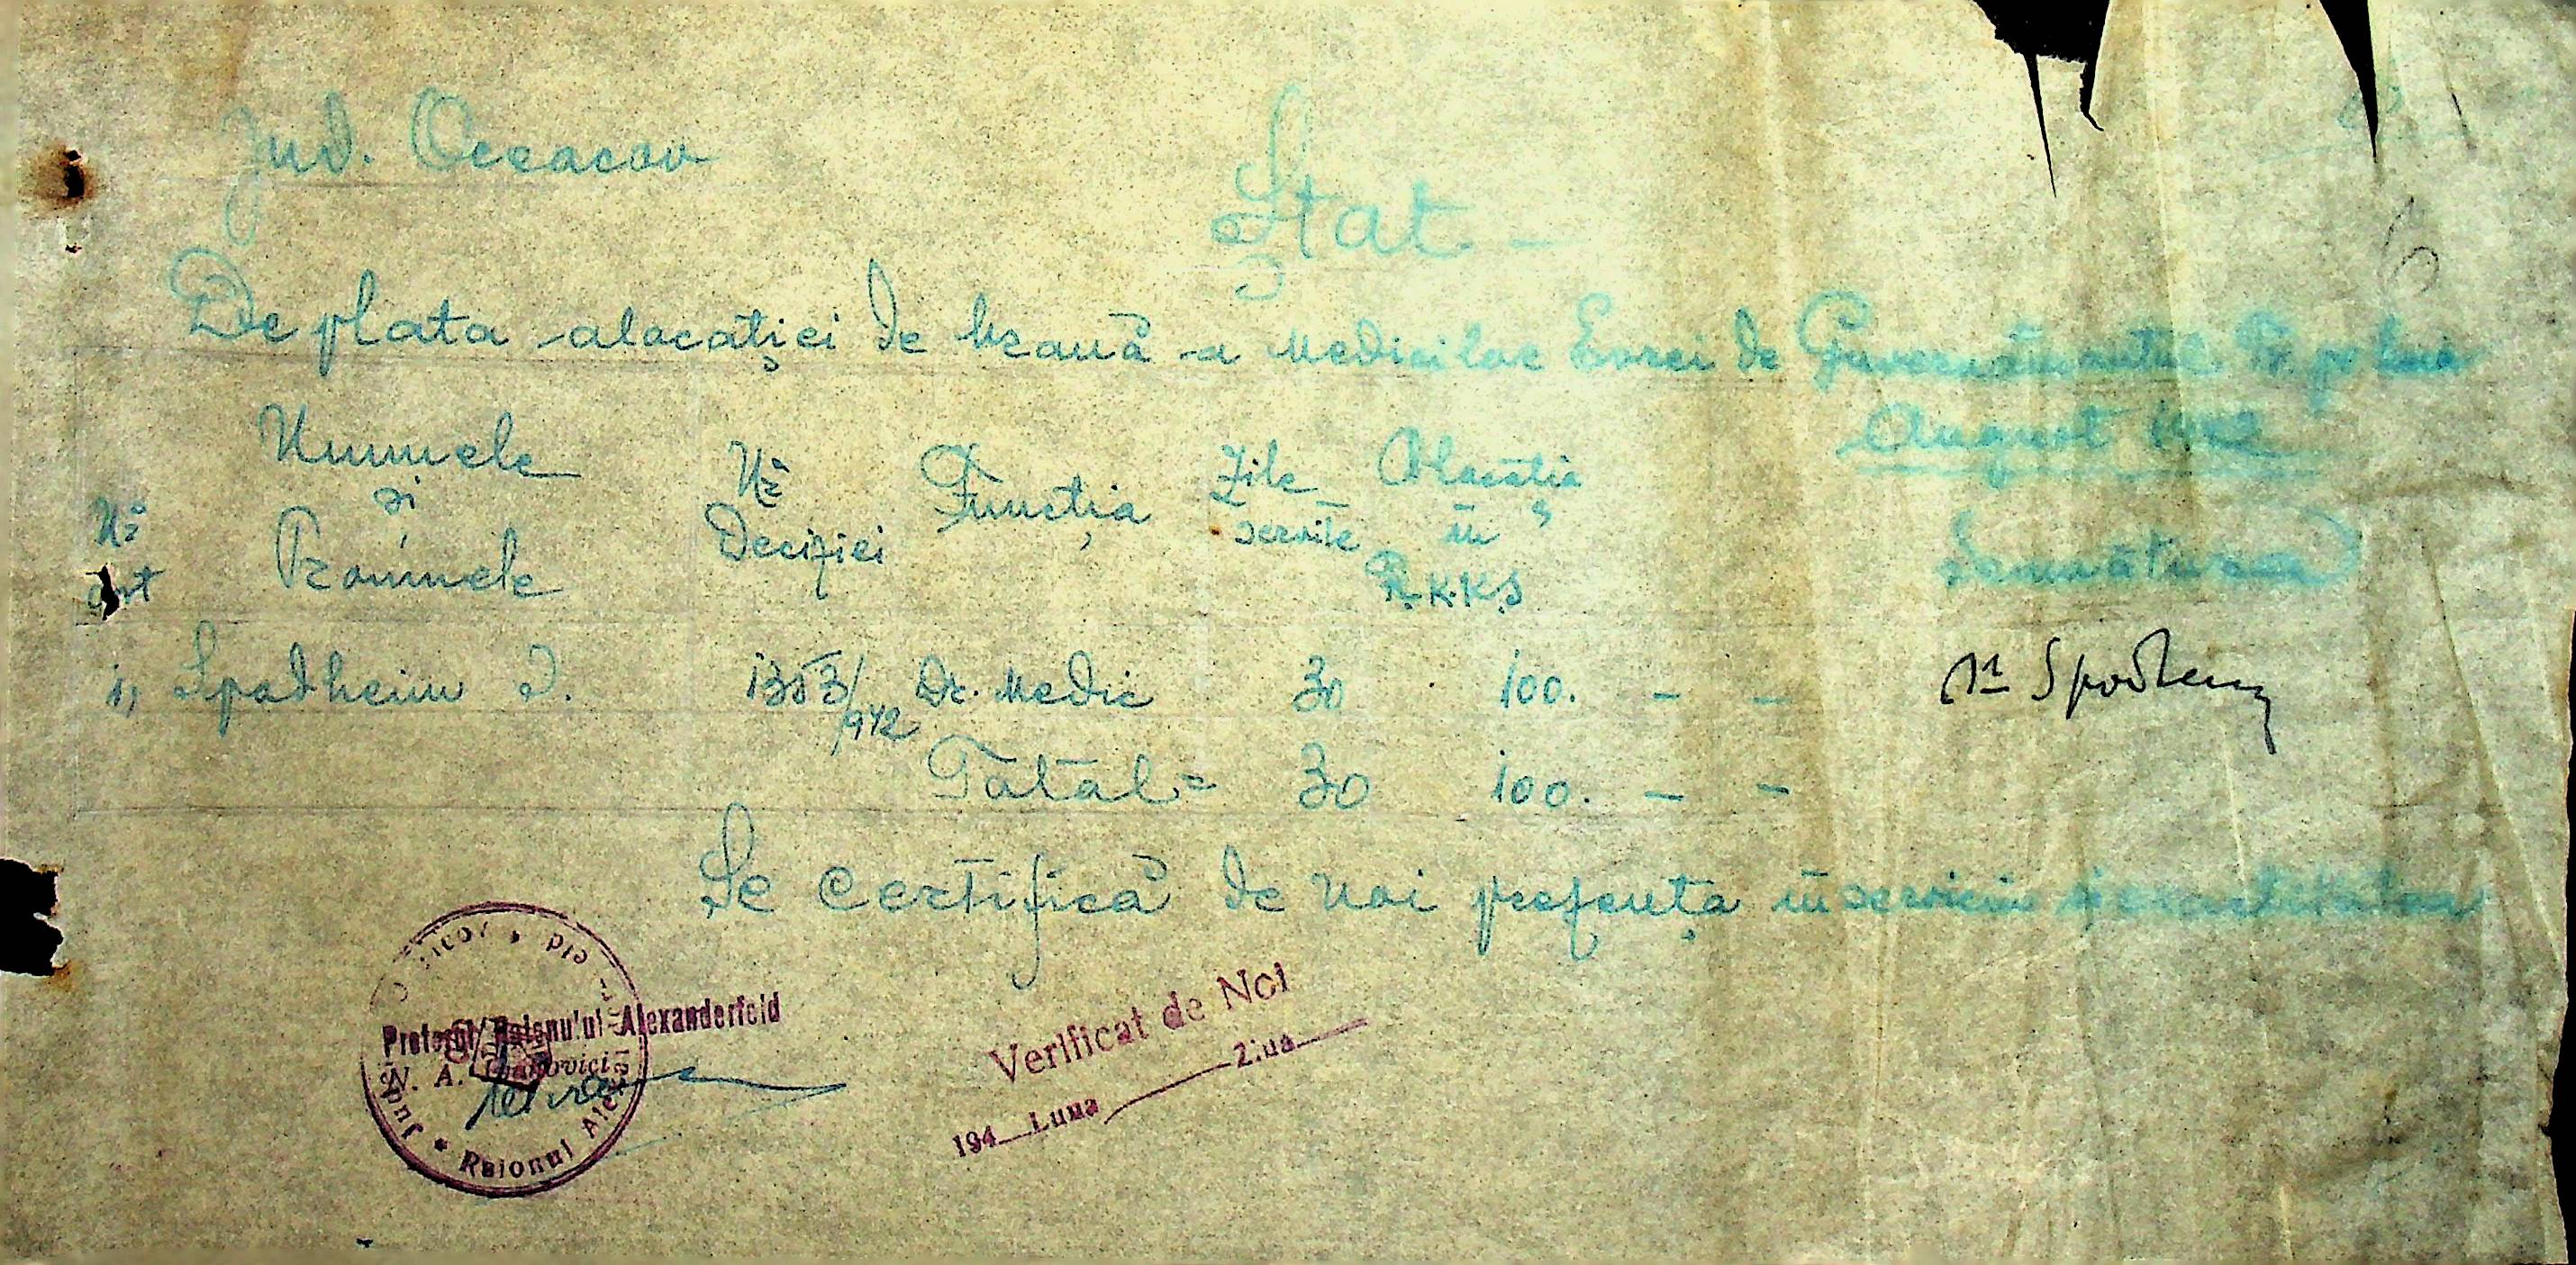 Jud. Oceacov
Ștat
De plata alocației de hrană a medicilor Evrei de Guvernământul Tr. pe luna
August 1942
Nr. ort
Numele și Pronumele
Nr. Deciziei
Funcția
Zile servite
Alocația în R.K.K.S
Semnătura
1, Spodheim I. 1353/942 Dr. Medic 30 100. - -
Total = 30 100. - -
Se certifică de noi prezența în serviciu și
Pretorul Raionului Alexanderfeld
N. A.
Jud. * Raionul Alex
Verificat de Noi
194 Luna Ziua